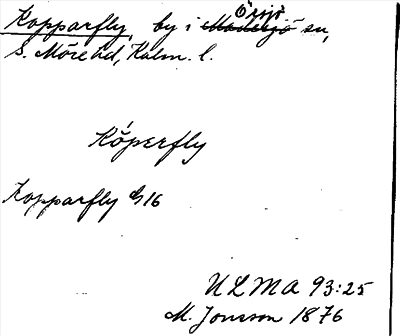 Kopparfly, by i Madesjö Örsjö sn,
S. Möre hd, Kalm. l.
Köperfly
Kopparfly G16
ULMA 93:25
M. Jonsson 1876